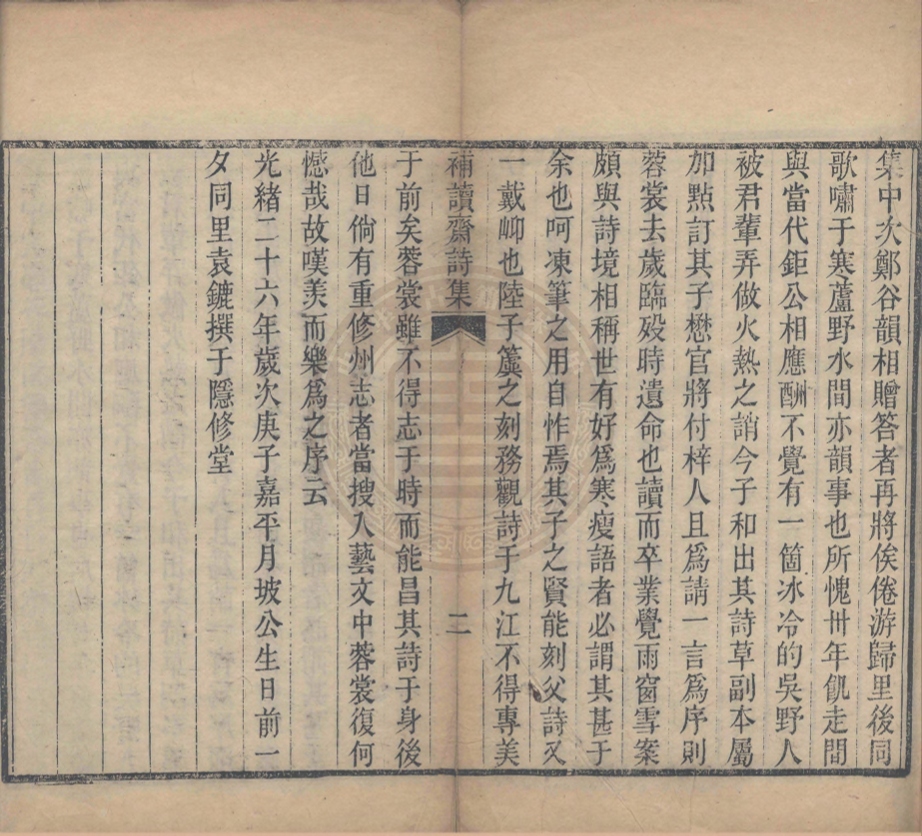 集中次鄭谷韻相贈答者再將俟倦游歸里後同
歌嘯于寒蘆野水間亦韻事也所愧卅年飢走間
與當代鉅公相應酬不覺有一箇冰冷的吳野人
被君輩弄做火熱之誚今子和出其詩草副本屬
加點訂其子懋官將付梓人且爲請一言爲序則
蓉裳去歲臨歿時遺命也讀而卒業覺雨窗雪案
頗與詩境相稱世有好爲寒瘦語者必謂其甚于
余也呵凍筆之用自怍焉其子之賢能刻父詩又
一戴峫也陸子簴之刻務觀詩于九江不得專美
補讀齋詩集 二
于前矣蓉裳雖不得志于時而能昌其詩于身後
他日倘有重修州志者當搜入藝文中蓉裳復何
憾哉故嘆羡而樂爲之序云
光緒二十六年歲次庚子嘉平月坡公生日前一
夕同里袁鏕撰于隱修堂